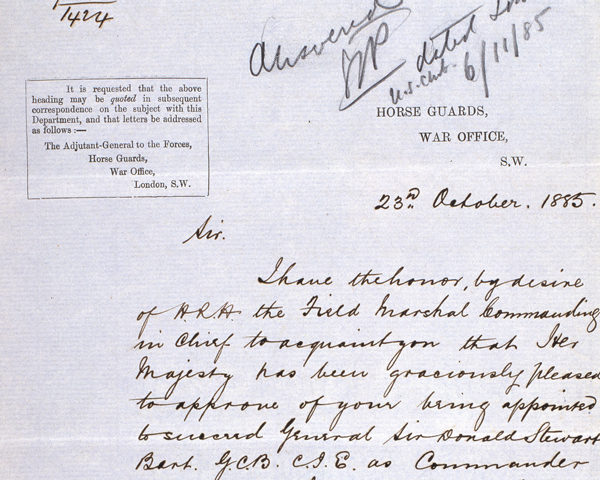 1424
Answered
dated
U.S. Club. 6/11/85
It is requested that the above
heading may be quoted in subsequent
correspondence on the subject with this
Department, and that letters be addressed
as follows :—
The Adjutant-General to the Forces,
Horse Guards,
War Office,
London, S.W.
HORSE GUARDS,
WAR OFFICE,
S.W.
23rd October. 1885.
Sir.
I have the honor, by desire
of H.R.H the Field Marshal Commanding
in Chief to acquaint you that Her
Majesty has been graciously pleased
to approve of your being appointed
to succeed General Sir Donald Stewart
Bart. G.C.B. C.I.E. as Commander